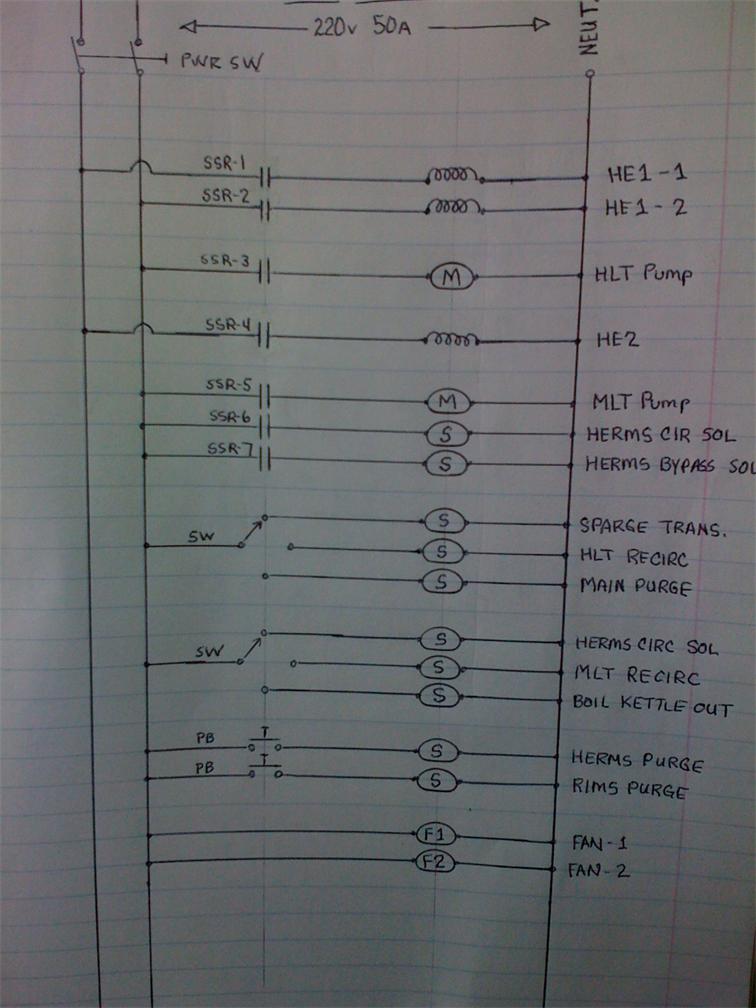 220V 50A
NEUT.
PWR SW
SSR-1 HE1-1
SSR-2 HE1-2
SSR-3 M HLT Pump
SSR-4 HE2
SSR-5 M MLT Pump
SSR-6 S HERMS CIR SOL
SSR-7 S HERMS BYPASS SOL
S SPARGE TRANS.
SW S HLT RECIRC
S MAIN PURGE
S HERMS CIRC SOL
SW S MLT RECIRC
S BOIL KETTLE OUT
PB S HERMS PURGE
PB S RIMS PURGE
F1 FAN-1
F2 FAN-2